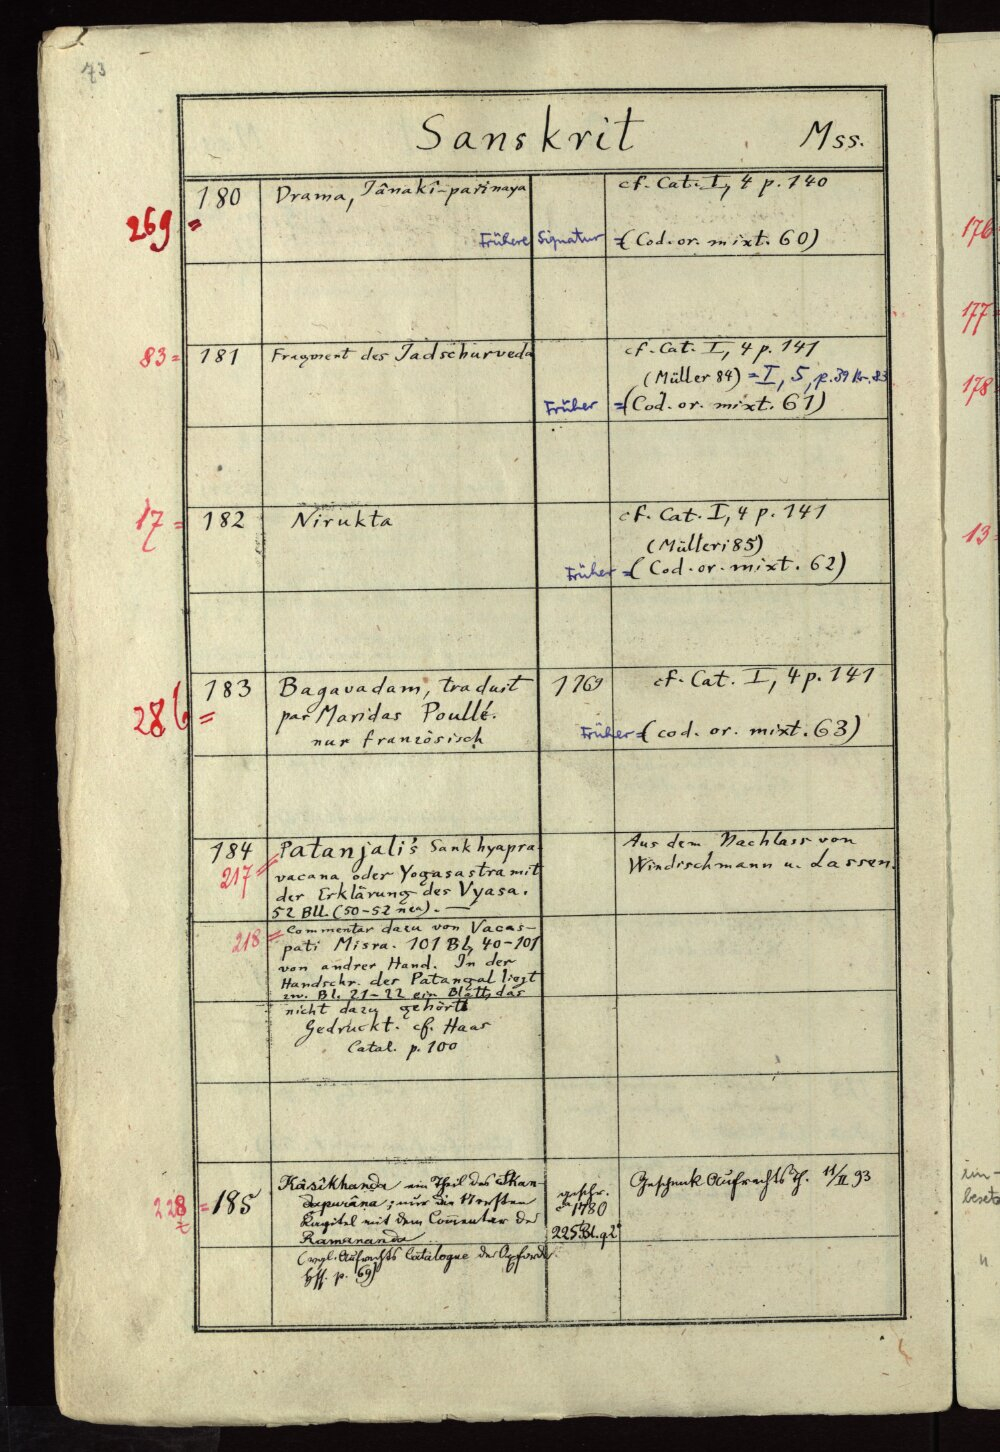 73
Sanskrit Mss.
269 = 180 Drama, Jânakî-pariṇaya cf. Cat. I, 4 p. 140
Frühere Signatur = (Cod. or. mixt. 60)
83 = 181 Fragment des Jadschurveda cf. Cat. I, 4 p. 141
(Müller 84) = I, 5, p. 39 Nr. 83
Früher = (Cod. or. mixt. 61)
17 = 182 Nirukta cf. Cat. I, 4 p. 141
(Müller 85)
Früher = (Cod. or. mixt. 62)
286 = 183 Bagavadam, traduit 1769 cf. Cat. I, 4 p. 141
par Maridas Poullé.
Früher = (cod. or. mixt. 63)
nur französisch
184 Patanjali's Sankhyapra- Aus dem Nachlass von
217 = vacana oder Yogasastra mit Windischmann u. Lassen.
der Erklärung des Vyasa.
52 Bll. (50-52 neu). —
218 = Commentar dazu von Vacas-
pati Misra. 101 Bl, 40-101
von andrer Hand. In der
Handschr. des Patangal liegt
zw. Bl. 21-22 ein Blatt, das
nicht dazu gehört
Gedruckt. cf. Haas
Catal. p. 100
228 = 185 Kâsîkhanda ein Theil des Skan- geschr. Geschenk Aufrechts Th. 11/II 93
dapurâna; nur die ersten ca 1780
Kapitel mit dem Commentar des 225 Bl. q 2°
Ramananda
(vgl. Aufrechts Catalogue der Oxforder
Hss. p. 69)
176
177
178
13
ein-
besetz